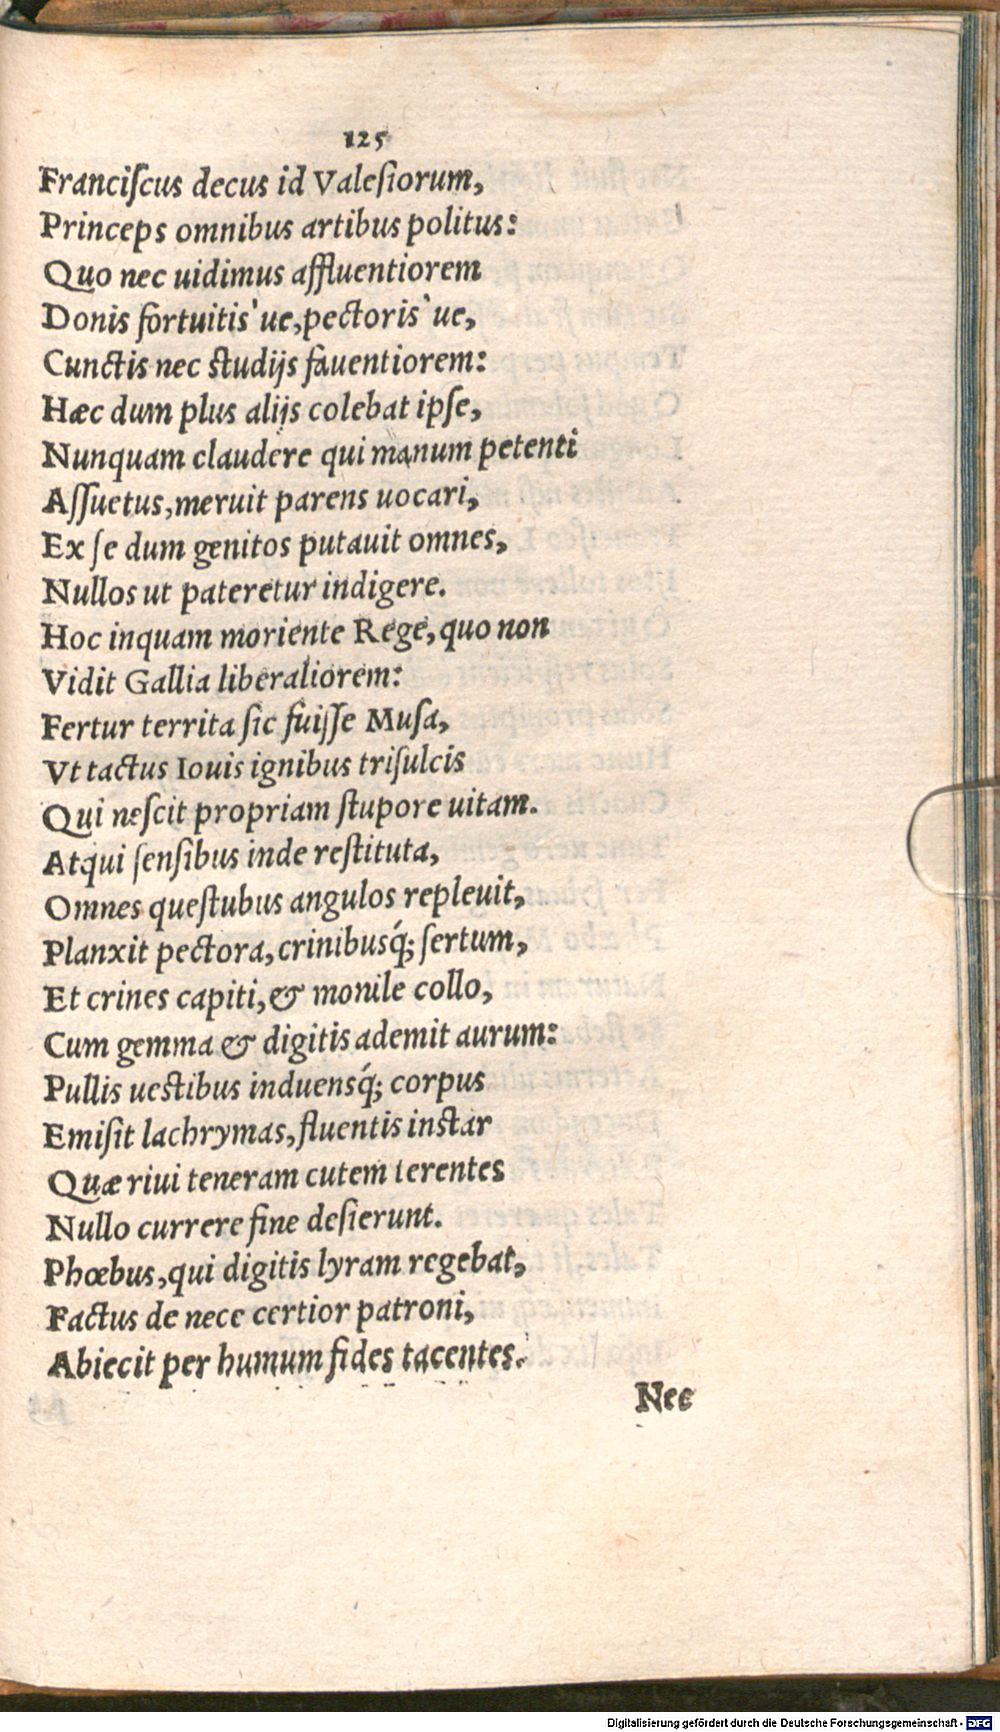 125
Franciſcus decus id Valeſiorum,
Princeps omnibus artibus politus:
Quo nec uidimus affluentiorem
Donis fortuitis'ue, pectoris'ue,
Cunctis nec studijs fauentiorem:
Hæc dum plus alijs colebat ipſe,
Nunquam claudere qui manum petenti
Aſſuetus, meruit parens uocari,
Ex ſe dum genitos putauit omnes,
Nullos ut pateretur indigere.
Hoc inquam moriente Rege, quo non
Vidit Gallia liberaliorem:
Fertur territa ſic fuiſſe Muſa,
Vt tactus Iouis ignibus triſulcis
Qui neſcit propriam ſtupore uitam.
Atqui ſenſibus inde reſtituta,
Omnes queſtubus angulos repleuit,
Planxit pectora, crinibusq́; ſertum,
Et crines capiti, & monile collo,
Cum gemma & digitis ademit aurum:
Pullis uestibus induensq́; corpus
Emiſit lachrymas, fluentis instar
Quæ riui teneram cutem terentes
Nullo currere fine deſierunt.
Phœbus, qui digitis lyram regebat,
Factus de nece certior patroni,
Abiecit per humum fides tacentes.
Nec
Digitalisierung gefördert durch die Deutsche Forschungsgemeinschaft - DFG